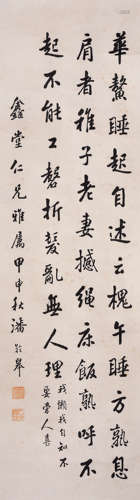 華鰲睡起自述云槐午睡方熟息
肩者稚子老妻撼繩床飯熟呼不
起不能工磬折髮亂無人理
我懶我自知不
要旁人喜
鑫堂仁兄雅属甲申秋潘齡皋